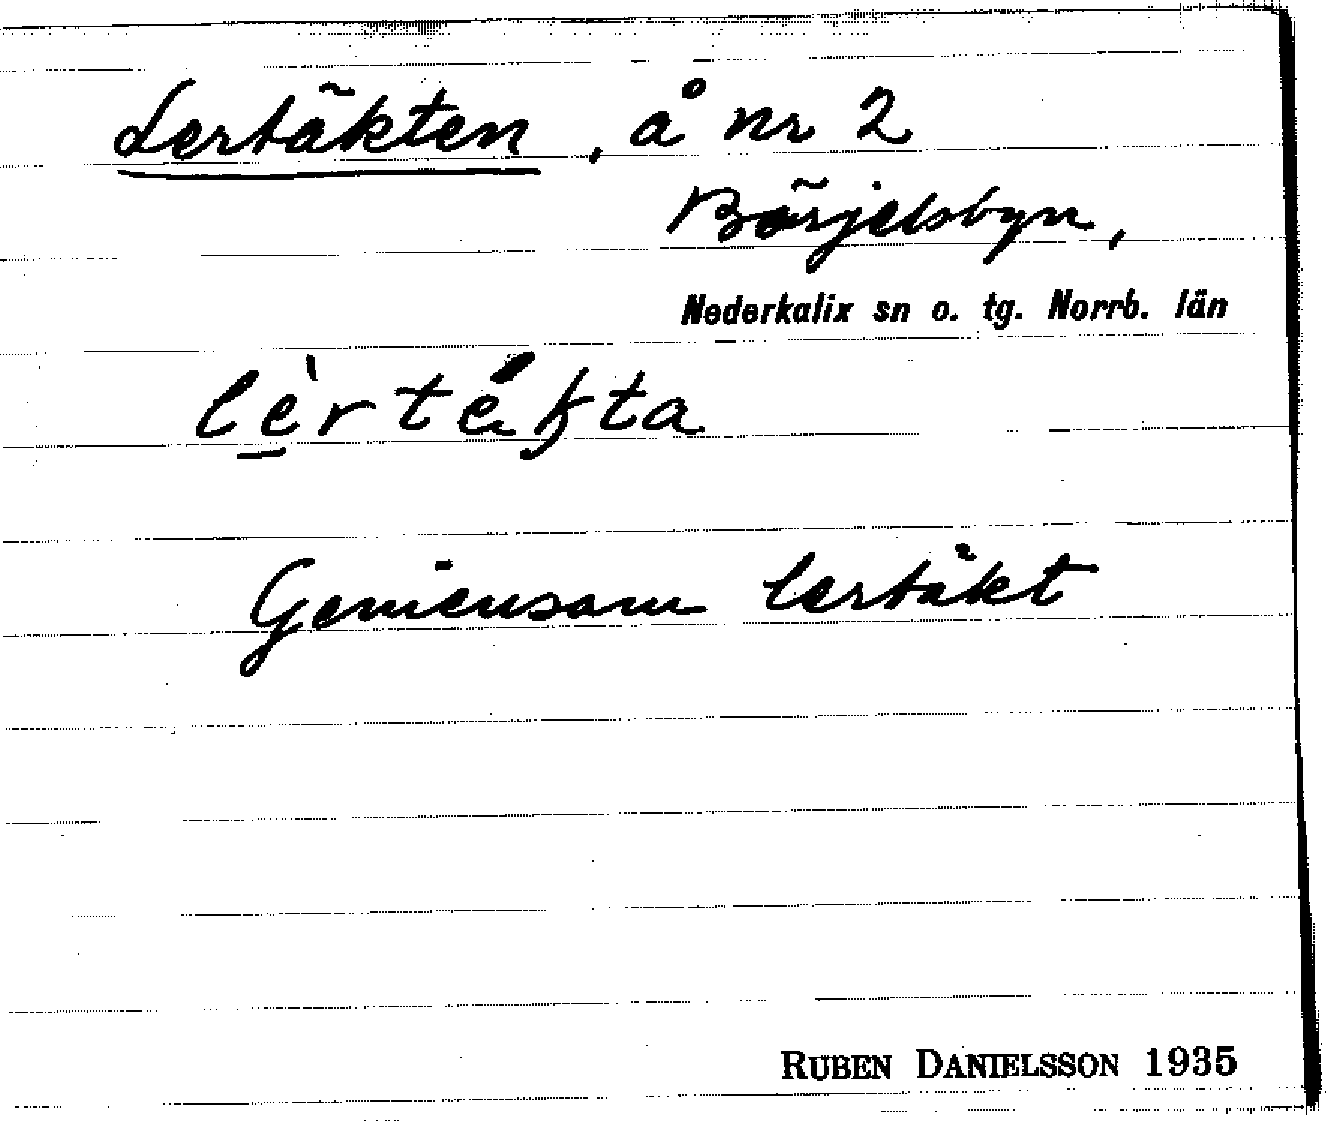 Lertäkten, å nr 2
Börjelsbyn,
Nederkalix sn o. tg. Norrb. län
Gemensam lertäkt
RUBEN DANIELSSON 1935